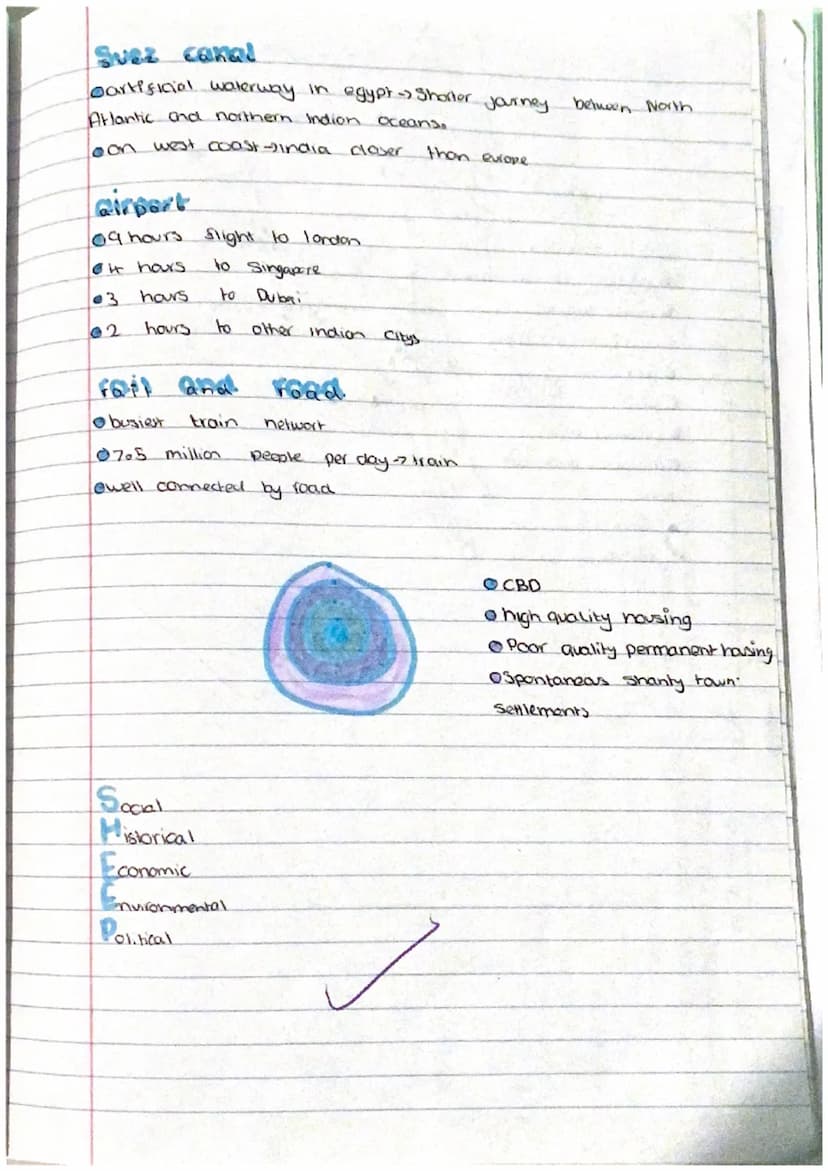 Suez canal
•artificial waterway in egypt→shorter journey between North
Atlantic and northern Indian oceans.
•on west coast→india closer than europe
airport
•9 hours flight to london
•4 hours to Singapore
•3 hours to Dubai
•2 hours to other indian citys
rail and road.
•busiest train network
•7.5 million people per day→train
•well connected by road
•CBD
•high quality housing
•Poor quality permanent housing
•Spontaneous shanty town
settlements
Social
Historical
Economic
Environmental
Political